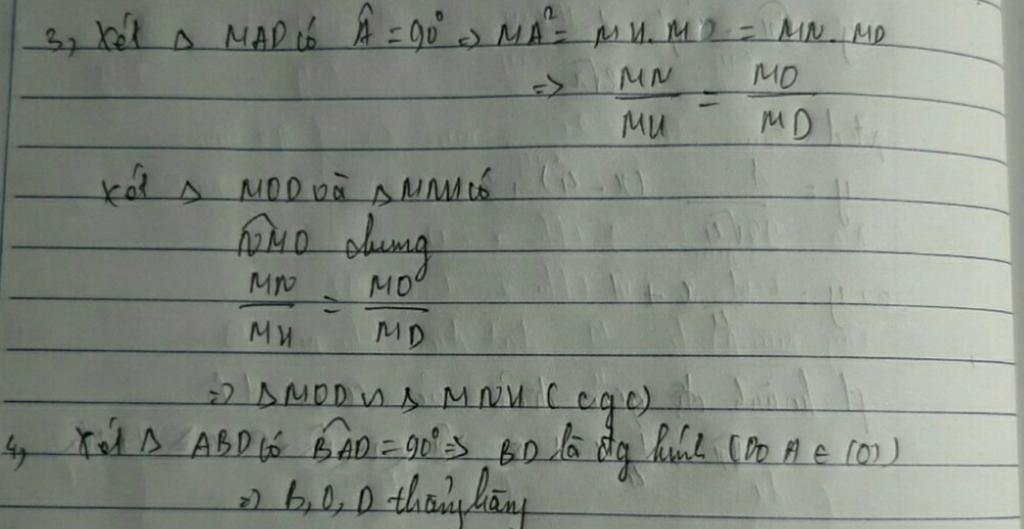 3, Xét Δ MAD có Â = 90° => MA² = MH. MO = MN. MD
=> MN/MH = MO/MD
Xét Δ MOD và Δ MNH có
NMO chung
MN/MH = MO/MD
=> Δ MOD ᔕ Δ MNH (cgc)
4, Xét Δ ABD có BAD = 90° => BD là đg kính (Do A ∈ (O))
=> B, O, D thẳng hàng